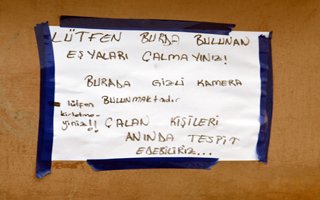 LÜTFEN BURDA BULUNAN
EŞYALARI ÇALMAYINIZ!
BURADA GİZLİ KAMERA
BULUNMAKTADIR
lütfen
kirletme-
yiniz!!
ÇALAN KİŞİLERİ
ANINDA TESPİT
EDEBİLİRİZ...